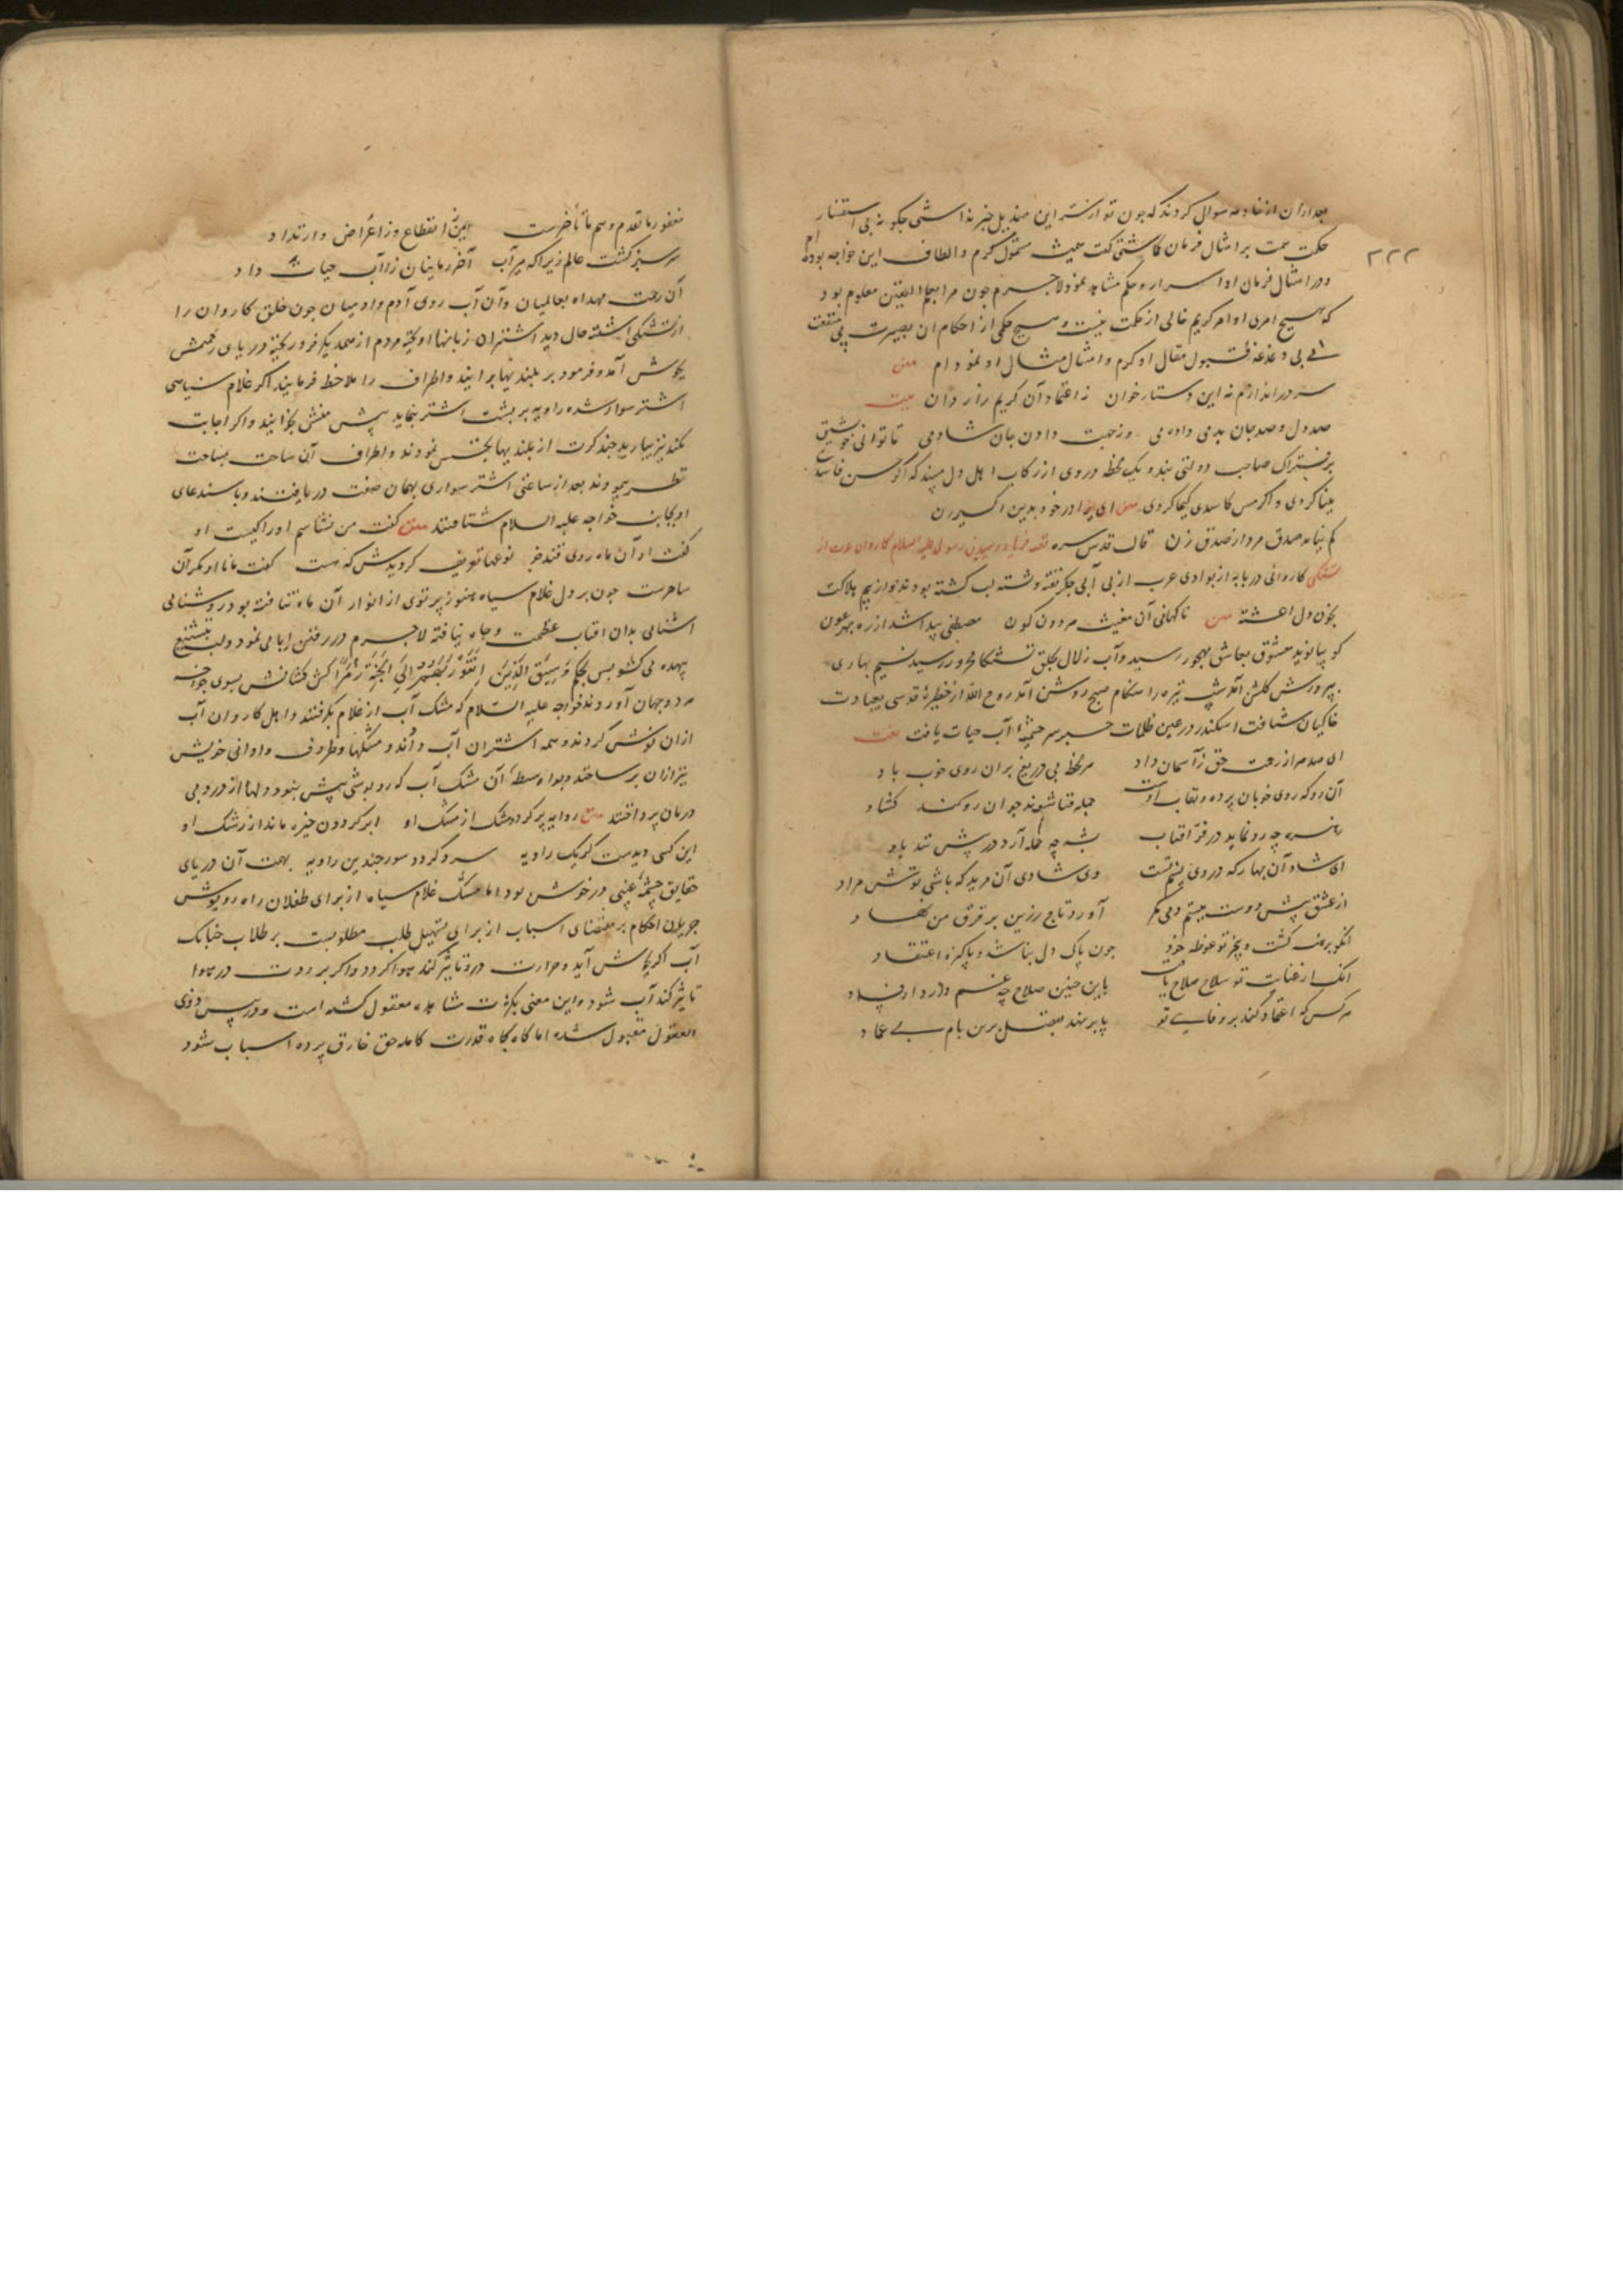 ۲۲۲
بعد ازان از خادمه سوال کردند که چون تو از سر این مندیل خبر نداشتی چکونه بی استفسار
حکمت همت بر امتثال فرمان کماشتی کفت همیشه مشمول کرم و الطاف این خواجه بوده ام
و در امتثال فرمان او اسرار و حکم مشاهده نموده لاجرم چون مرا بعلم الیقین معلوم بود
که هیچ امری اوامر کریم خالی از حکمت نیست و هیچ حکمی از احکام ان بصیرت بی منفعت
نی بی دغدغه قبول مقال او کرم و امتثال مثال او نموده ام متن
سر دراندازم نه این دستار خوان ز اعتماد آن کریم راز دان بیت
صد دل و صد جان بدمی دادمی وز جهت دادن جان شادمی تا توانی خویش
بر فتراک صاحب دولتی بند و یک لحظه روی از رکاب اهل دل مپیچ که اکر مس فاسدی
مینا کردی و اکر مس کاسدی کیمیا کردی متن ای برادر خود بدین اکسیر زن
کم نباید صدق مرد از صدق زن قال قدس سره قصه فریاد رسیدن رسول علیه السلام کاروان عرب از
تشنکی کاروانی در بابه از بوادی عرب از بی آبی جکر تفته و تشنه لب کشته بودند و از بیم هلاکت
بخون دل اغشته متن ناکهانی آن مغیث هر دو کون مصطفی پیدا شد از ره بهر عون
کویا نوید معشوق بعاشق مهجور رسید و آب زلال بحلق تشنکان محرور رسید نسیم بهاری
بپرورش کلشن آمد شب تیره را هنکام صبح روشن آمد روح الله از خطیره قدسی بعیادت
خاکیان شتافت اسکندر در عین ظلمات خبر سر چشمه آب حیات یافت نعت
ای صد مدد از رحمت حق ز آسمان داد هر لحظه بی دریغ بران روی خوب باد
آن رو که روی خوبان پرده و نقاب اوست جمله فنا شوند چو ان رو کند کشاد
زهره چه رو نماید در فر آفتاب پشه چه حمله آرد در پیش تند باد
ای شاد آن بهار که در وی نسیم تست وی شادی آن مرید که باشی توتش مراد
از عشق پیش دوست ببستم دمی کمر آورد تاج زرین بر فرق من نهاد
انکو برهنه کشت و ببحر تو غوطه خورد چون پاک دل نباشد و پاکیزه اعتقاد
انک از عنایت تو سلاح صلاح یافت با این چنین صلاح چه غم دارد از فساد
هر کس که اعتماد کند بر وفای تو پا بر نهد بفضل برین بام بی عماد
مغفور ما تقدم و هم ما تأخرست ایمن ز انقطاع و ز اعراض و ارتداد
سر سبز کشت عالم زیرا که میر آب آخر زمانیان را آب حیات داد
آن رحمت مهداه بعالمیان و آن آب روی آدم و ادمیان چون خلق کاروان را
از تشنکی اشفته حال دید اشتران زبانها اویخته مردم از همدیکر فرو ریخته دریای رحمتش
بجوش آمد و فرمود بر بلندیها برایند و اطراف را ملاحظه فرمایند اکر غلام سیاهی
اشتر سوار شده راویه بر پشت اشتر بنماید پیش منش بخوانید و اکر اجابت
نکند نیز بیارید چند کرت از بلندیها تجسس نمودند و اطراف آن ساحت بمساحت
نظر پیمودند بعد از ساعتی اشتر سواری بهمان صفت دریافتند و باستدعای
او بجانب خواجه علیه السلام شتافتند متن کفت من نشناسم او را کیست او
کفت او آن ماه روی قند خو نوعها تعریف کردندش که هست کفت مانا او مکر آن
ساحرست چون بر دل غلام سیاه هنوز پرتوی از انوار آن ماه نتافته بود و روشنایی
اشنایی بدان افتاب عظمت و جاه نیافته لاجرم در رفتن ابا می نمود و لب بتشنیع
بیهده می کشود پس بحکم وسیق الذین اتقوا ربهم الی الجنة زمرا کش کشانش بسوی خواجه
هر دو جهان آوردند خواجه علیه السلام که مشک آب از غلام بکرفتند و اهل کاروان آب
ازان نوش کردند و همه اشتران آب دادند و مشکها و ظروف و اوانی خویش
نیز ازان پر ساختند و بواوسطه آن مشک آب که روپوشی پیش نبود دلها از درد بی
درمان پرداختند متن راویه پر کرد و مشک از مشک او ابر کردون خیره ماند از رشک او
این کسی دیدست کز یک راویه سرد کردد سوز چندین راویه بهت آن دریای
حقایق چشمه غیبی در خوش بود اما مشک غلام سیاه از برای طفلان راه روپوش
جریان احکام بر مقتضای اسباب از برای تسهیل طلب مطلوبست بر طلاب چنانک
آب اکر بجوش آید و حرارت درو تاثیر کند هوا کردد و اکر برودت در هوا
تاثیر کند آب شود و این معنی بکرات مشاهده معقول کشته است و در پیش ذوی
العقول مقبول شده اما کاه بکاه قدرت کامله حق خارق پرده اسباب شود